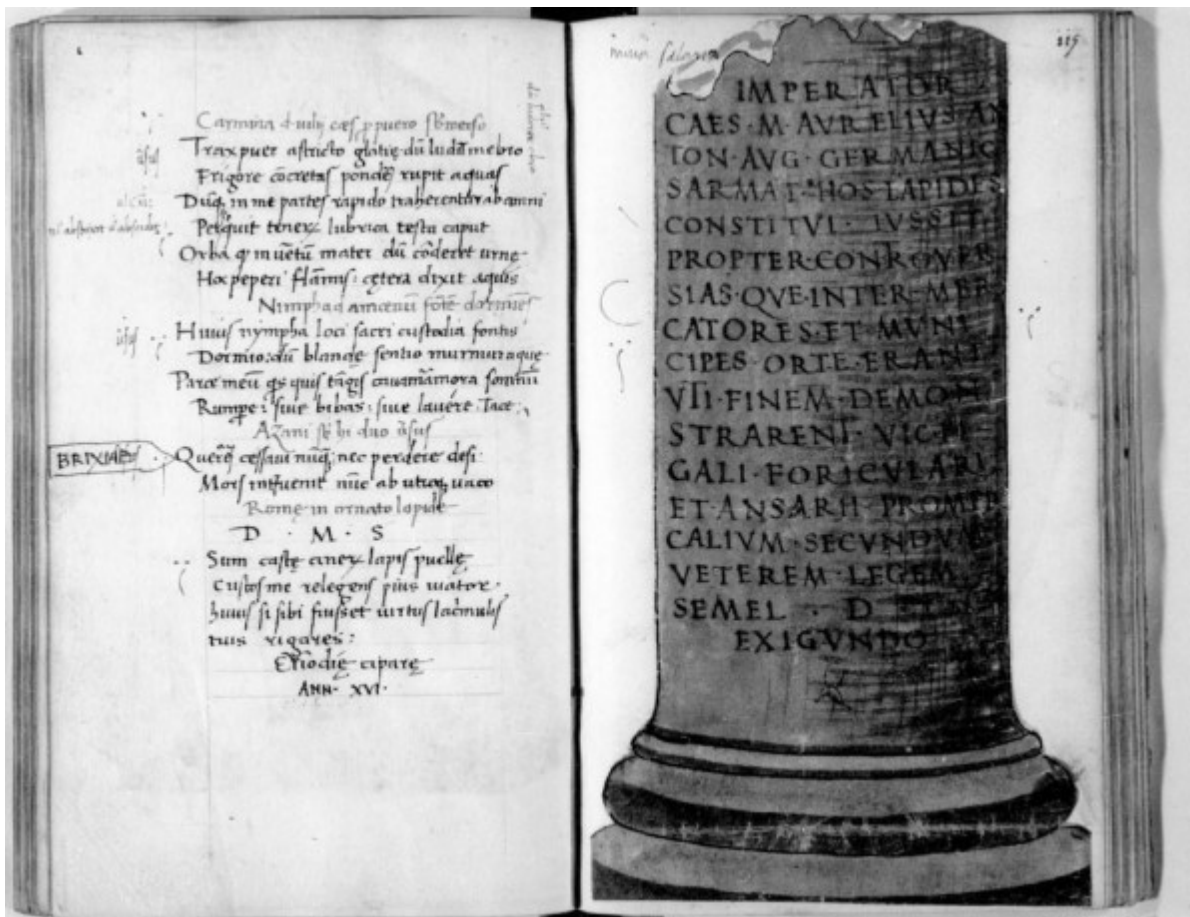 Carmina d iulij cæs p puero sbmerso
Trax puer astricto glatie dũ ludit in ebro
Frigore cõcretas pondẽ rupit aquas
Dũq in me partes rapido traherentur ab amni
tenex lubrica testa caput
Orba q in uẽtũ mater dũ cõderet urne
Hoc peperi flãmis: cętera dixit aquis
Nimpha ad amœnum fõtẽ dormiẽs
Huius nympha loci sacri custodia fontis
Dormio: dũ blandę sentio murmur aquę
Parce meũ qs quis tãgis caua mãmora somnũ
Rumpe: siue bibas: siue lauere: Tace:
hi duo
BRIXIAE
cessaui nũq: nec perdere desi:
Mors nũc ab utroq uaco
Romę in ornato lapide
D · M · S
Sum castę cinex lapis puellę
Custos me relegens pius uiator
huius si sibi fuisset uirtus lacrmulis
tuis rigares:
ciparę
ANN· XVI·
115
IMPERATOR
CAES·M·AVRELIVS AN
TON·AVG·GERMANIC
SARMAT·HOS LAPIDES
CONSTITVI·IVSSIT
PROPTER·CONTROVER
SIAS·QVE·INTER·MER
CATORES·ET MVNI
CIPES·ORTE·ERANT
VTI·FINEM·DEMON
STRARENT·VIC·TI
GALI·FORICVLARI
ET·ANSARII·PROMER
CALIVM·SECVNDVM
VETEREM·LEGEM
SEMEL · D
EXIGVNDO